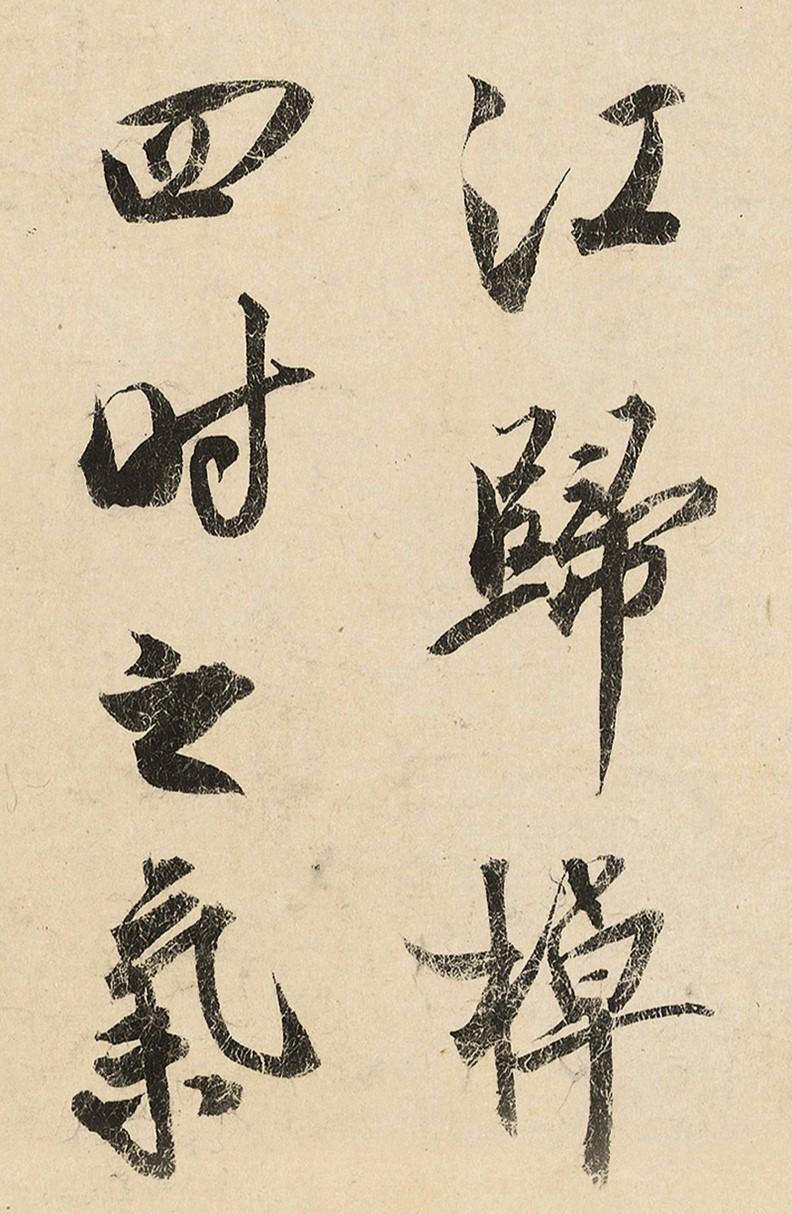 江歸棹
四时之氣